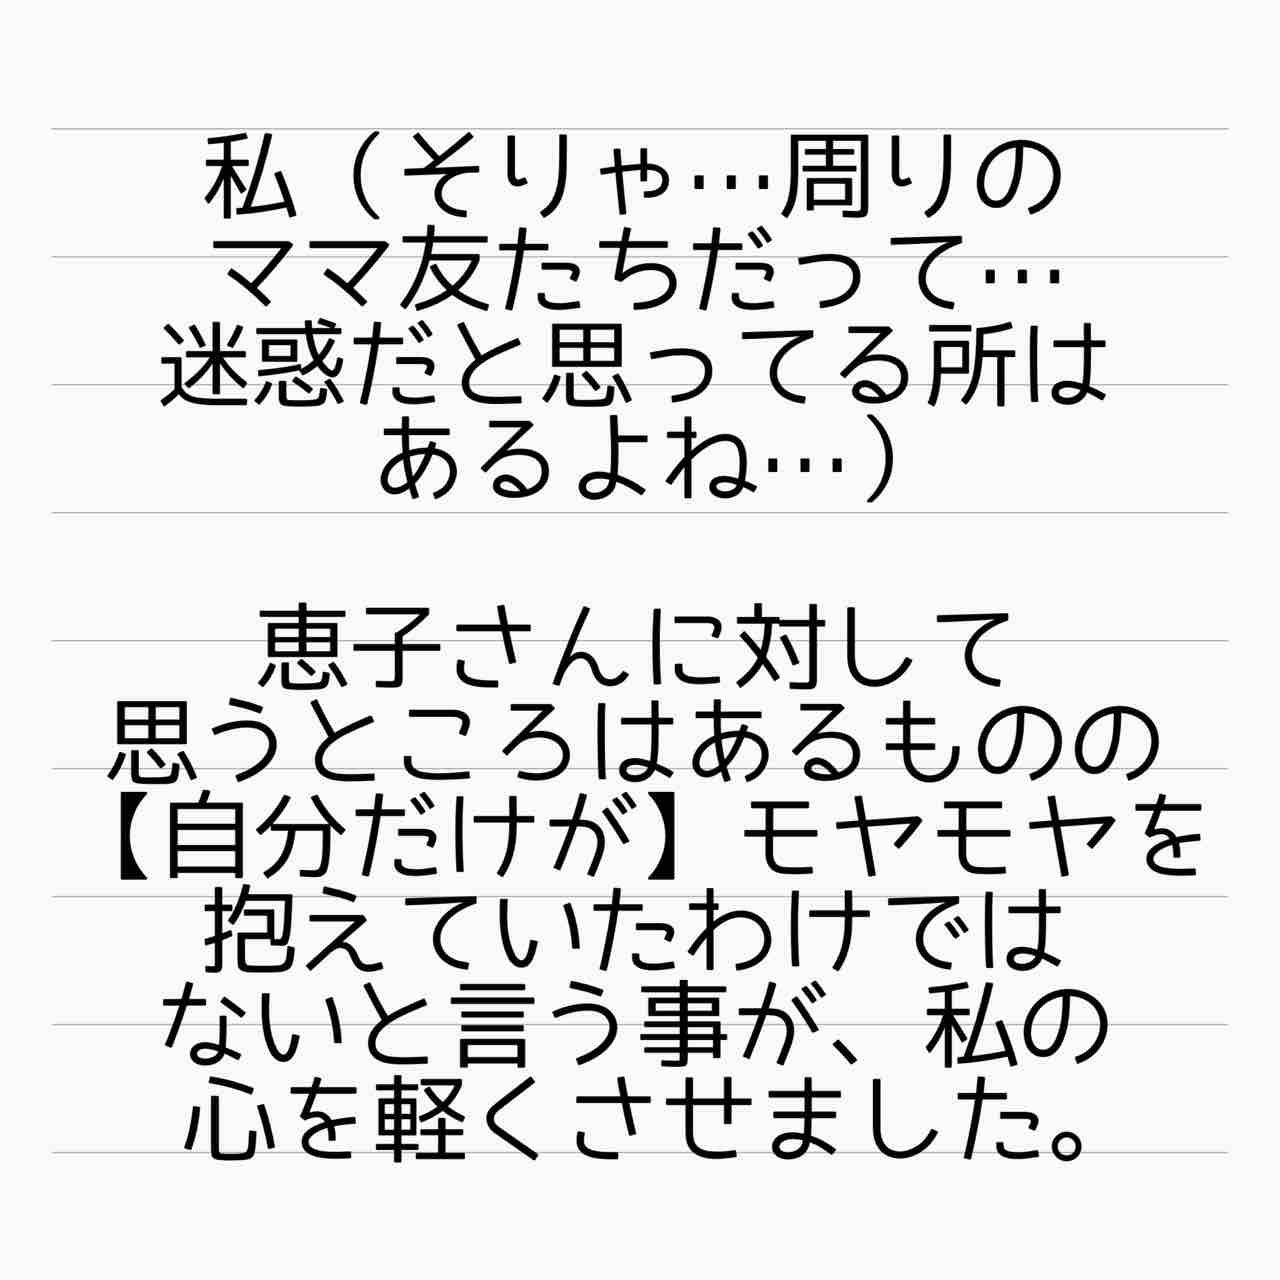 私（そりゃ…周りの
ママ友たちだって…
迷惑だと思ってる所は
あるよね…）
恵子さんに対して
思うところはあるものの
【自分だけが】モヤモヤを
抱えていたわけでは
ないと言う事が、私の
心を軽くさせました。